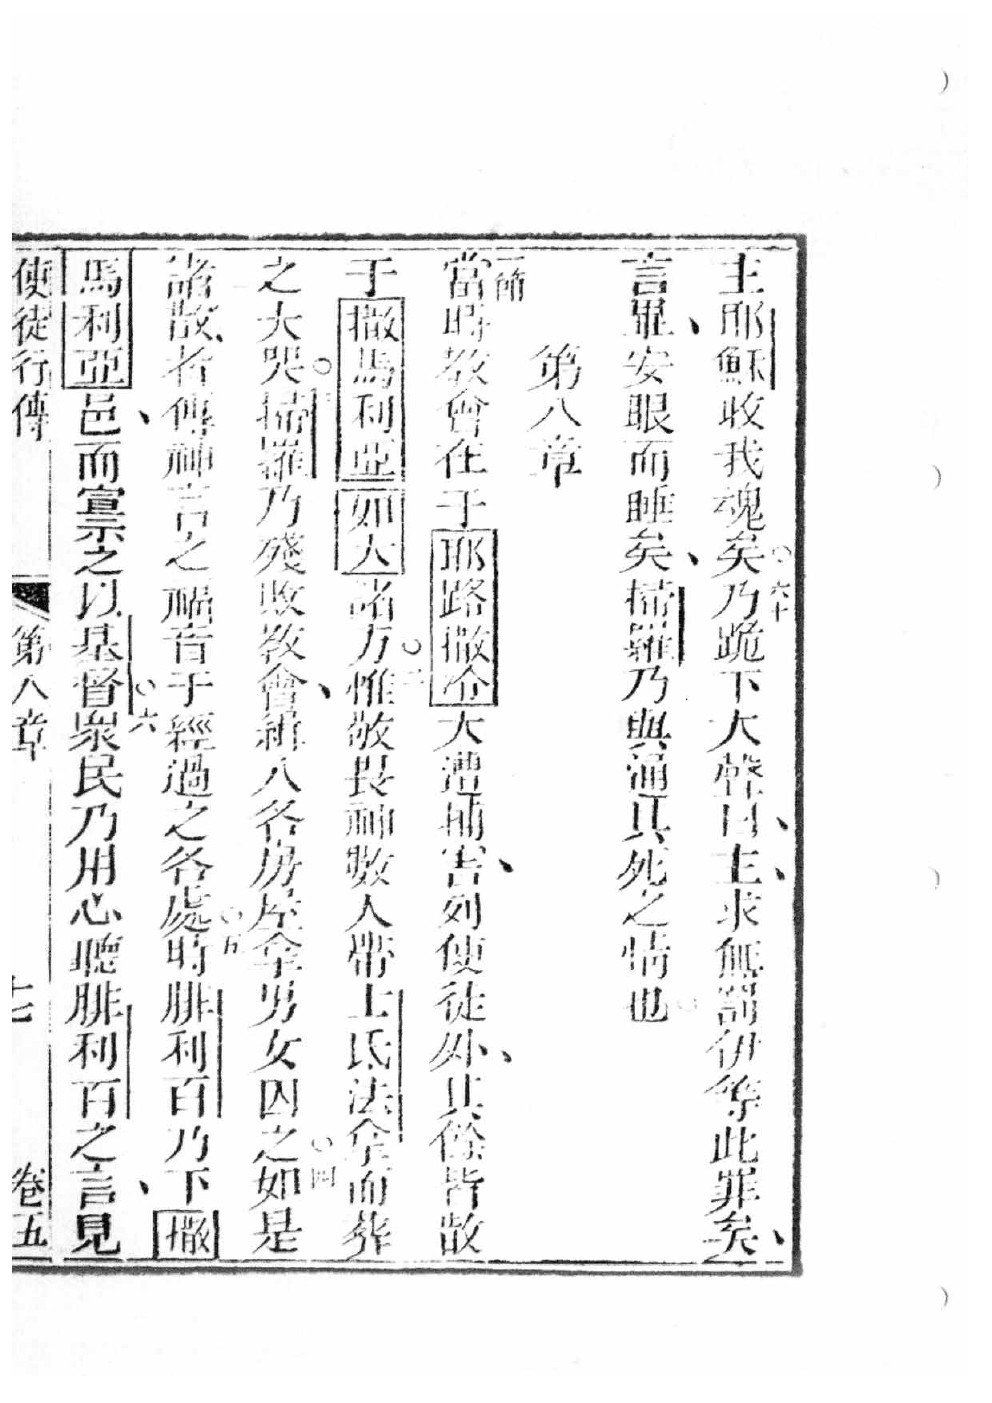 主耶穌收我魂矣○六十乃跪下大聲曰、主、求無罰伊等此罪矣、
言畢、安眼而睡矣、掃羅乃與通其死之情也○
第八章
一節當時教會在于耶路撒冷大遭捕害、列使徒外、其餘皆散
于撒馬利亞如大諸方○二惟敬畏神數人帶士氐法傘而葬
之大哭○三掃羅乃殘敗教會、緝入各房屋傘男女囚之○四如是
諸散、者傳神言之福音于經過之各處○五時腓利百乃下撒
馬利亞邑、而宣示之以基督○六衆民乃用心聽腓利百之言、見
使徒行傳 第八章 七 卷五